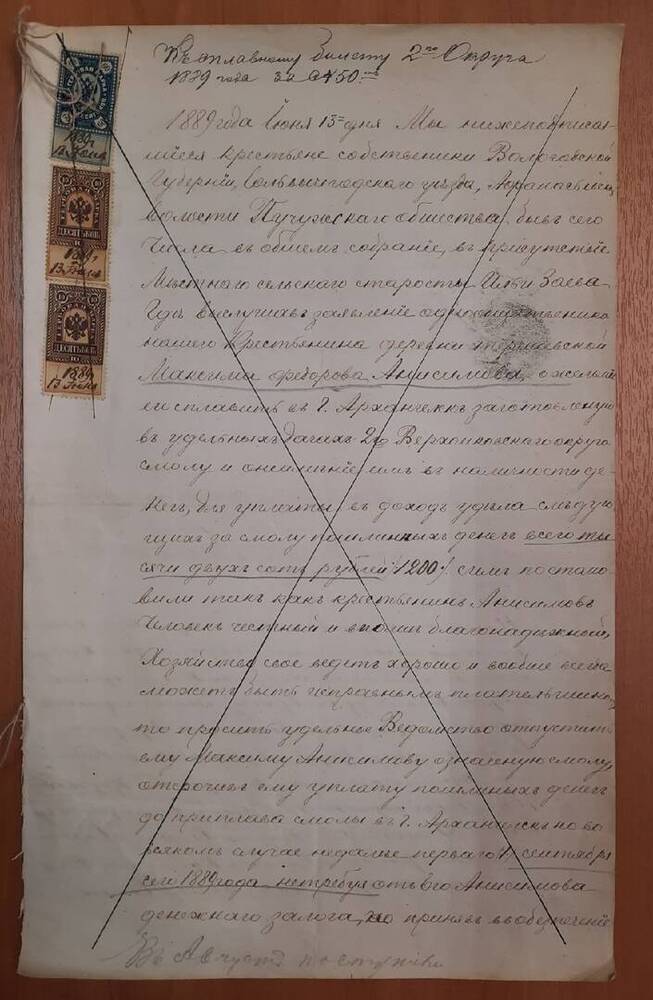 Къ сплавному билету 2го Округа
1889 года за № 50
1889 года Июня 13 дня Мы нижеподписав-
шіеся крестьяне собственники Вологодской
Губерніи, Сольвычегодскаго уѣзда, Афанасьевск.
волости Пучужскаго общества, бывъ сего
числа въ общемъ собраніе, въ присутствіе
Мѣстнаго сельскаго старосты Ильи Заева
Гдѣ выслушавъ заявленіе однообщественника
нашего Крестьянина деревни
Максима Федорова Анисимова, о желаніи
его сплавить въ Г. Архангельскъ заготовленную
въ удѣльныхъ дачахъ 2го округа
смолу и онеимѣніе имъ въ наличности де-
негъ, для уплаты въ доходъ удѣла слѣдую-
щихъ за смолу пошлинныхъ денегъ всего ты-
сячи двухъ сотъ рублей /1200/. симъ постано-
вили такъ какъ крестьянинъ Анисимовъ
Человекъ честный и вполнѣ благонадежной,
Хозяйство свое ведетъ хорошо и вообще всегда
можетъ быть исправнымъ плательщикомъ,
то просить удѣльное Ведомство отпустить
ему Максиму Анисимову означенную смолу,
отсрочивъ ему уплату пошлинныхъ денегъ
до приплава смолы въ Г. Архангельскъ но во
всякомъ случае недалѣе перваго /1/ сентября
сего 1889 года нетребуя отъ его Анисимова
денежнаго залога, но принявъ въ обезпеченіе
Въ Августѣ поступили
1889
13 Іюня
ДЕСЯТЬ КОП.
10
1889
13 Іюня
ДЕСЯТЬ КОП.
10
1889
13 Іюня